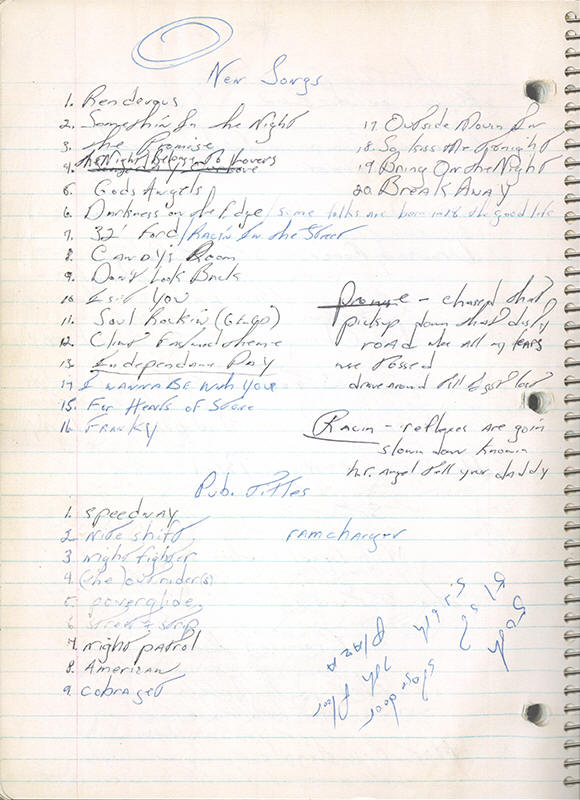 New Songs
1. Rendevous
2. Somethin In the Night
3. the Promise
4. the Night/Belongs to Lovers
5. Gods Angels
6. Darkness on the Edge / some folks are born into the good life
7. 32' Ford / Racin In the Street
8. Candys Room
9. Don't Look Back
10. I
11. Soul Rockin
12.
13. Independence Day
14. I WANNA BE With YOU
15. For Hearts of Stone
16. FRANKY
17. Outside Lookin In
18. So Kiss Me Tonight
19. Bring On the Night
20. BREAK AWAY
Promise - chased that
pickup down that dusty
road
was tossed
drove around till
Racin - reflexes are goin
slown down known
her. Angel tell your daddy
Pub. Titles
1. speedway
2. nite shift
3. night fighter
4. (the) outrider(s)
5. powerglide
6. Street & Strip
7. night patrol
8. American
9. cobra jet
ramcharger
PLAZA
7th floor
door